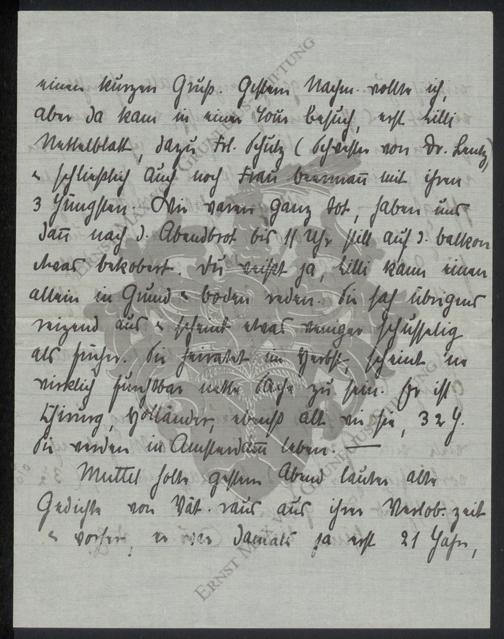 einen kurzen Gruß. Gestern Nachm. wollte ich,
aber da kam in einer Tour Besuch, erst Lilli
Nettelblatt, dazu Frl. Schulz (Schwester von Dr. Lentz)
& schließlich auch noch Frau Beermann mit ihren
3 Jüngsten. Wir waren ganz tot, haben uns
dann nach d. Abendbrot bis 11 Uhr still auf d. Balkon
etwas bekobert. Du weißt ja Lilli kann einen
allein in Grund & Boden reden. Sie sah übrigens
reizend aus & scheint etwas weniger schusselig
als früher. Sie heiratet im Herbst, scheint ne
wirklich furchtbar nette Sache zu sein. Er ist
Chirurg, Holländer, ebenso alt wie sie, 32 J.
Sie werden in Amsterdam leben. —
Muttel holte gestern Abend lauter alte
Gedichte von Vat. raus aus ihrer Verlob. zeit
& vorher, er war damals ja erst 21 Jahr,
ERNST MAX VON GRUNELIUS-STIFTUNG
ERNST MAX VON GRUNELIUS-STIFTUNG